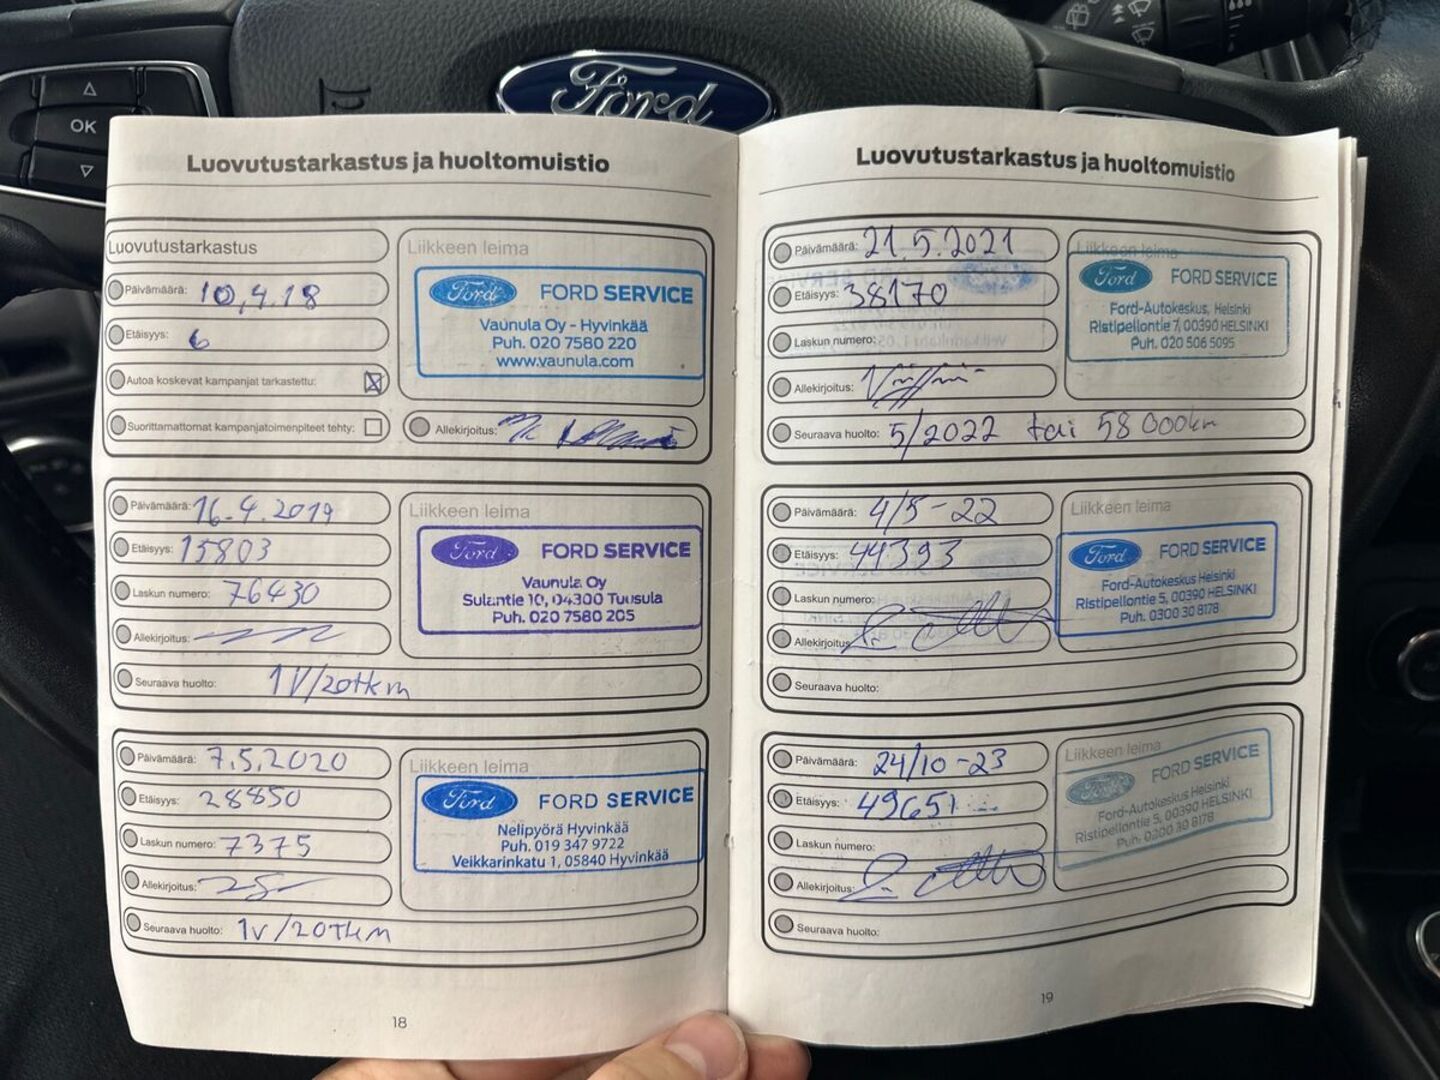 OK
Ford
Luovutustarkastus ja huoltomuistio
Luovutustarkastus
Päivämäärä: 10,4.18
Etäisyys: 6
Autoa koskevat kampanjat tarkastettu:
Suorittamattomat kampanjatoimenpiteet tehty:
Liikkeen leima
Ford FORD SERVICE
Vaunula Oy - Hyvinkää
Puh. 020 7580 220
www.vaunula.com
Allekirjoitus:
Päivämäärä: 16.4.2019
Etäisyys: 15803
Laskun numero: 76430
Allekirjoitus:
Seuraava huolto: 1V/20tkm
Liikkeen leima
Ford FORD SERVICE
Vaunula Oy
Sulantie 10, 04300 Tuusula
Puh. 020 7580 205
Päivämäärä: 7.5.2020
Etäisyys: 28850
Laskun numero: 7375
Allekirjoitus:
Seuraava huolto: 1v/20tkm
Liikkeen leima
Ford FORD SERVICE
Nelipyörä Hyvinkää
Puh. 019 347 9722
Veikkarinkatu 1, 05840 Hyvinkää
18
Luovutustarkastus ja huoltomuistio
Päivämäärä: 21.5.2021
Etäisyys: 38170
Laskun numero:
Allekirjoitus:
Seuraava huolto: 5/2022 tai 58 000km
Liikkeen leima
Ford FORD SERVICE
Ford-Autokeskus, Helsinki
Ristipellontie 7, 00390 HELSINKI
Puh. 020 506 5095
Päivämäärä: 4/5-22
Etäisyys: 44393
Laskun numero:
Allekirjoitus:
Seuraava huolto:
Liikkeen leima
Ford FORD SERVICE
Ford-Autokeskus Helsinki
Ristipellontie 5, 00390 HELSINKI
Puh. 0300 30 8178
Päivämäärä: 24/10-23
Etäisyys: 49651
Laskun numero:
Allekirjoitus:
Seuraava huolto:
Liikkeen leima
Ford FORD SERVICE
Ford-Autokeskus Helsinki
Ristipellontie 5, 00390 HELSINKI
Puh. 0300 30 8178
19